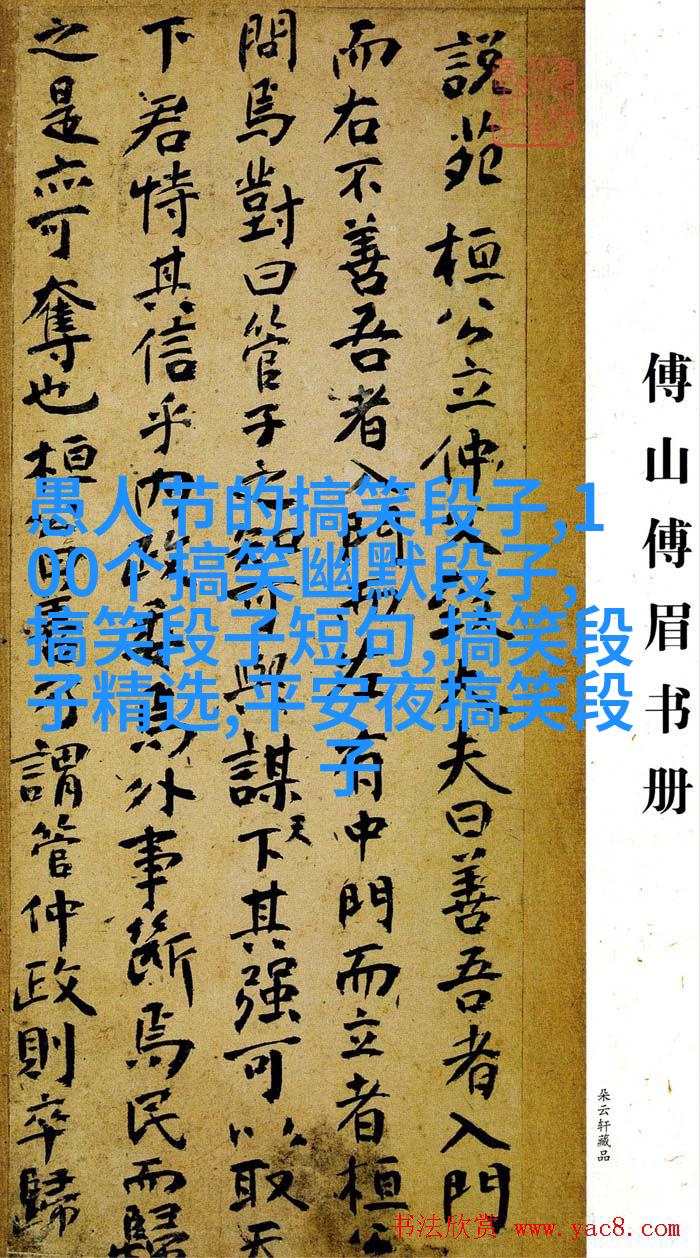 説苑 桓公立仲父大夫曰善吾者入門
而右不善吾者入門而左有中門而立者桓公
問焉對曰管子之智可與謀天下其强可以取天
下君恃其信乎内政委焉外事斷焉民而歸
之是亦可奪也桓公曰善乃謂管仲政則卒歸
傅山傅眉书册
朵云轩藏品
愚人节的搞笑段子,1
00个搞笑幽默段子,
搞笑段子短句,搞笑段
子精选,平安夜搞笑段
子
书法欣赏 www.yac8.com